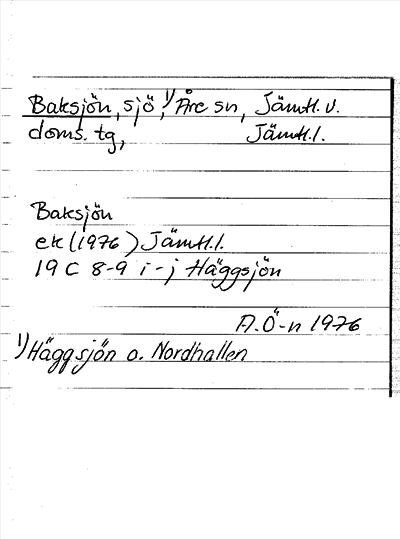 Baksjön, sjö,¹⁾ Åre sn, Jämtl. v.
doms. tg, Jämtl. l.
Baksjön
ek (1976) Jämtl. l.
19 C 8-9 i-j Häggsjön
A.Ö-n 1976
¹⁾ Häggsjön o. Nordhallen